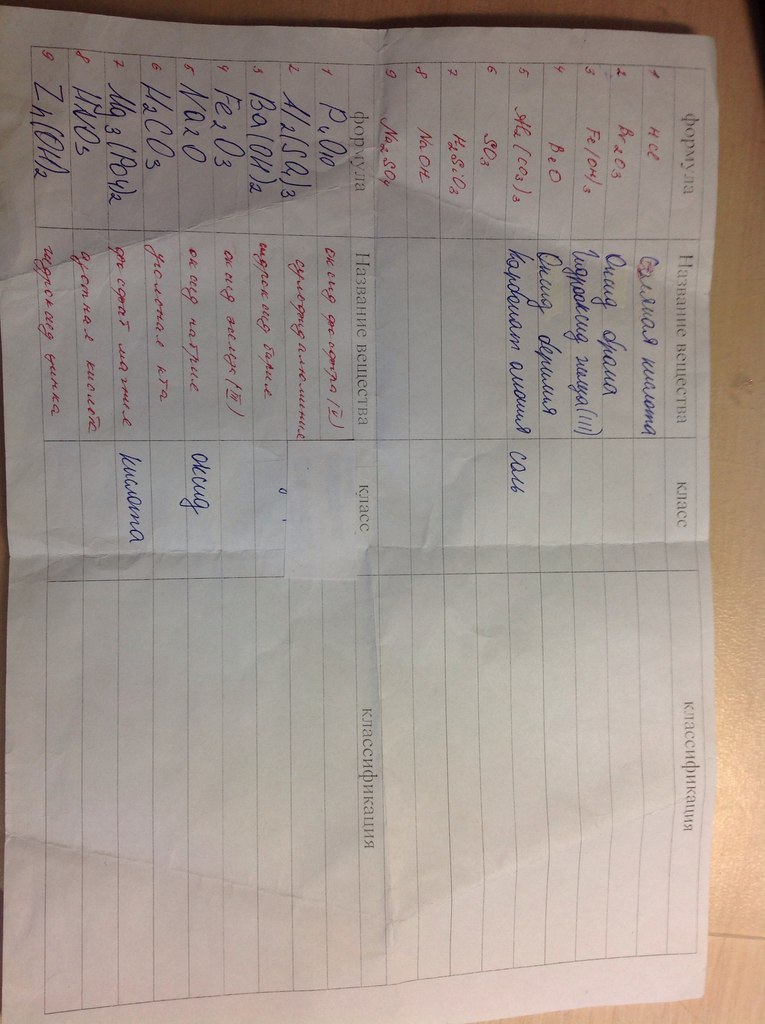 формула Название вещества класс классификация
1 HCl Соляная кислота
2 Br2O3 Оксид брома
3 Fe(OH)3 Гидрооксид
4 BeO Оксид берилия
5 Al2(CO3)3 Карбонат алюмия соль
6 SO3
7 H2SiO3
8 NaOH
9 Na2SO4
формула Название вещества класс классификация
1 оксид фосфора (V)
2 Al2(SO4)3
3 Ba(OH)2 гидроксид бария
4 Fe2O3 оксид железа (III)
5 Na2O оксид натрия оксид
6 H2CO3 угольная к-та
7 Mg3(PO4)2 фосфат магния кислота
8 HNO3 азотная кислота
9 Zn(OH)2 гидроксид цинка